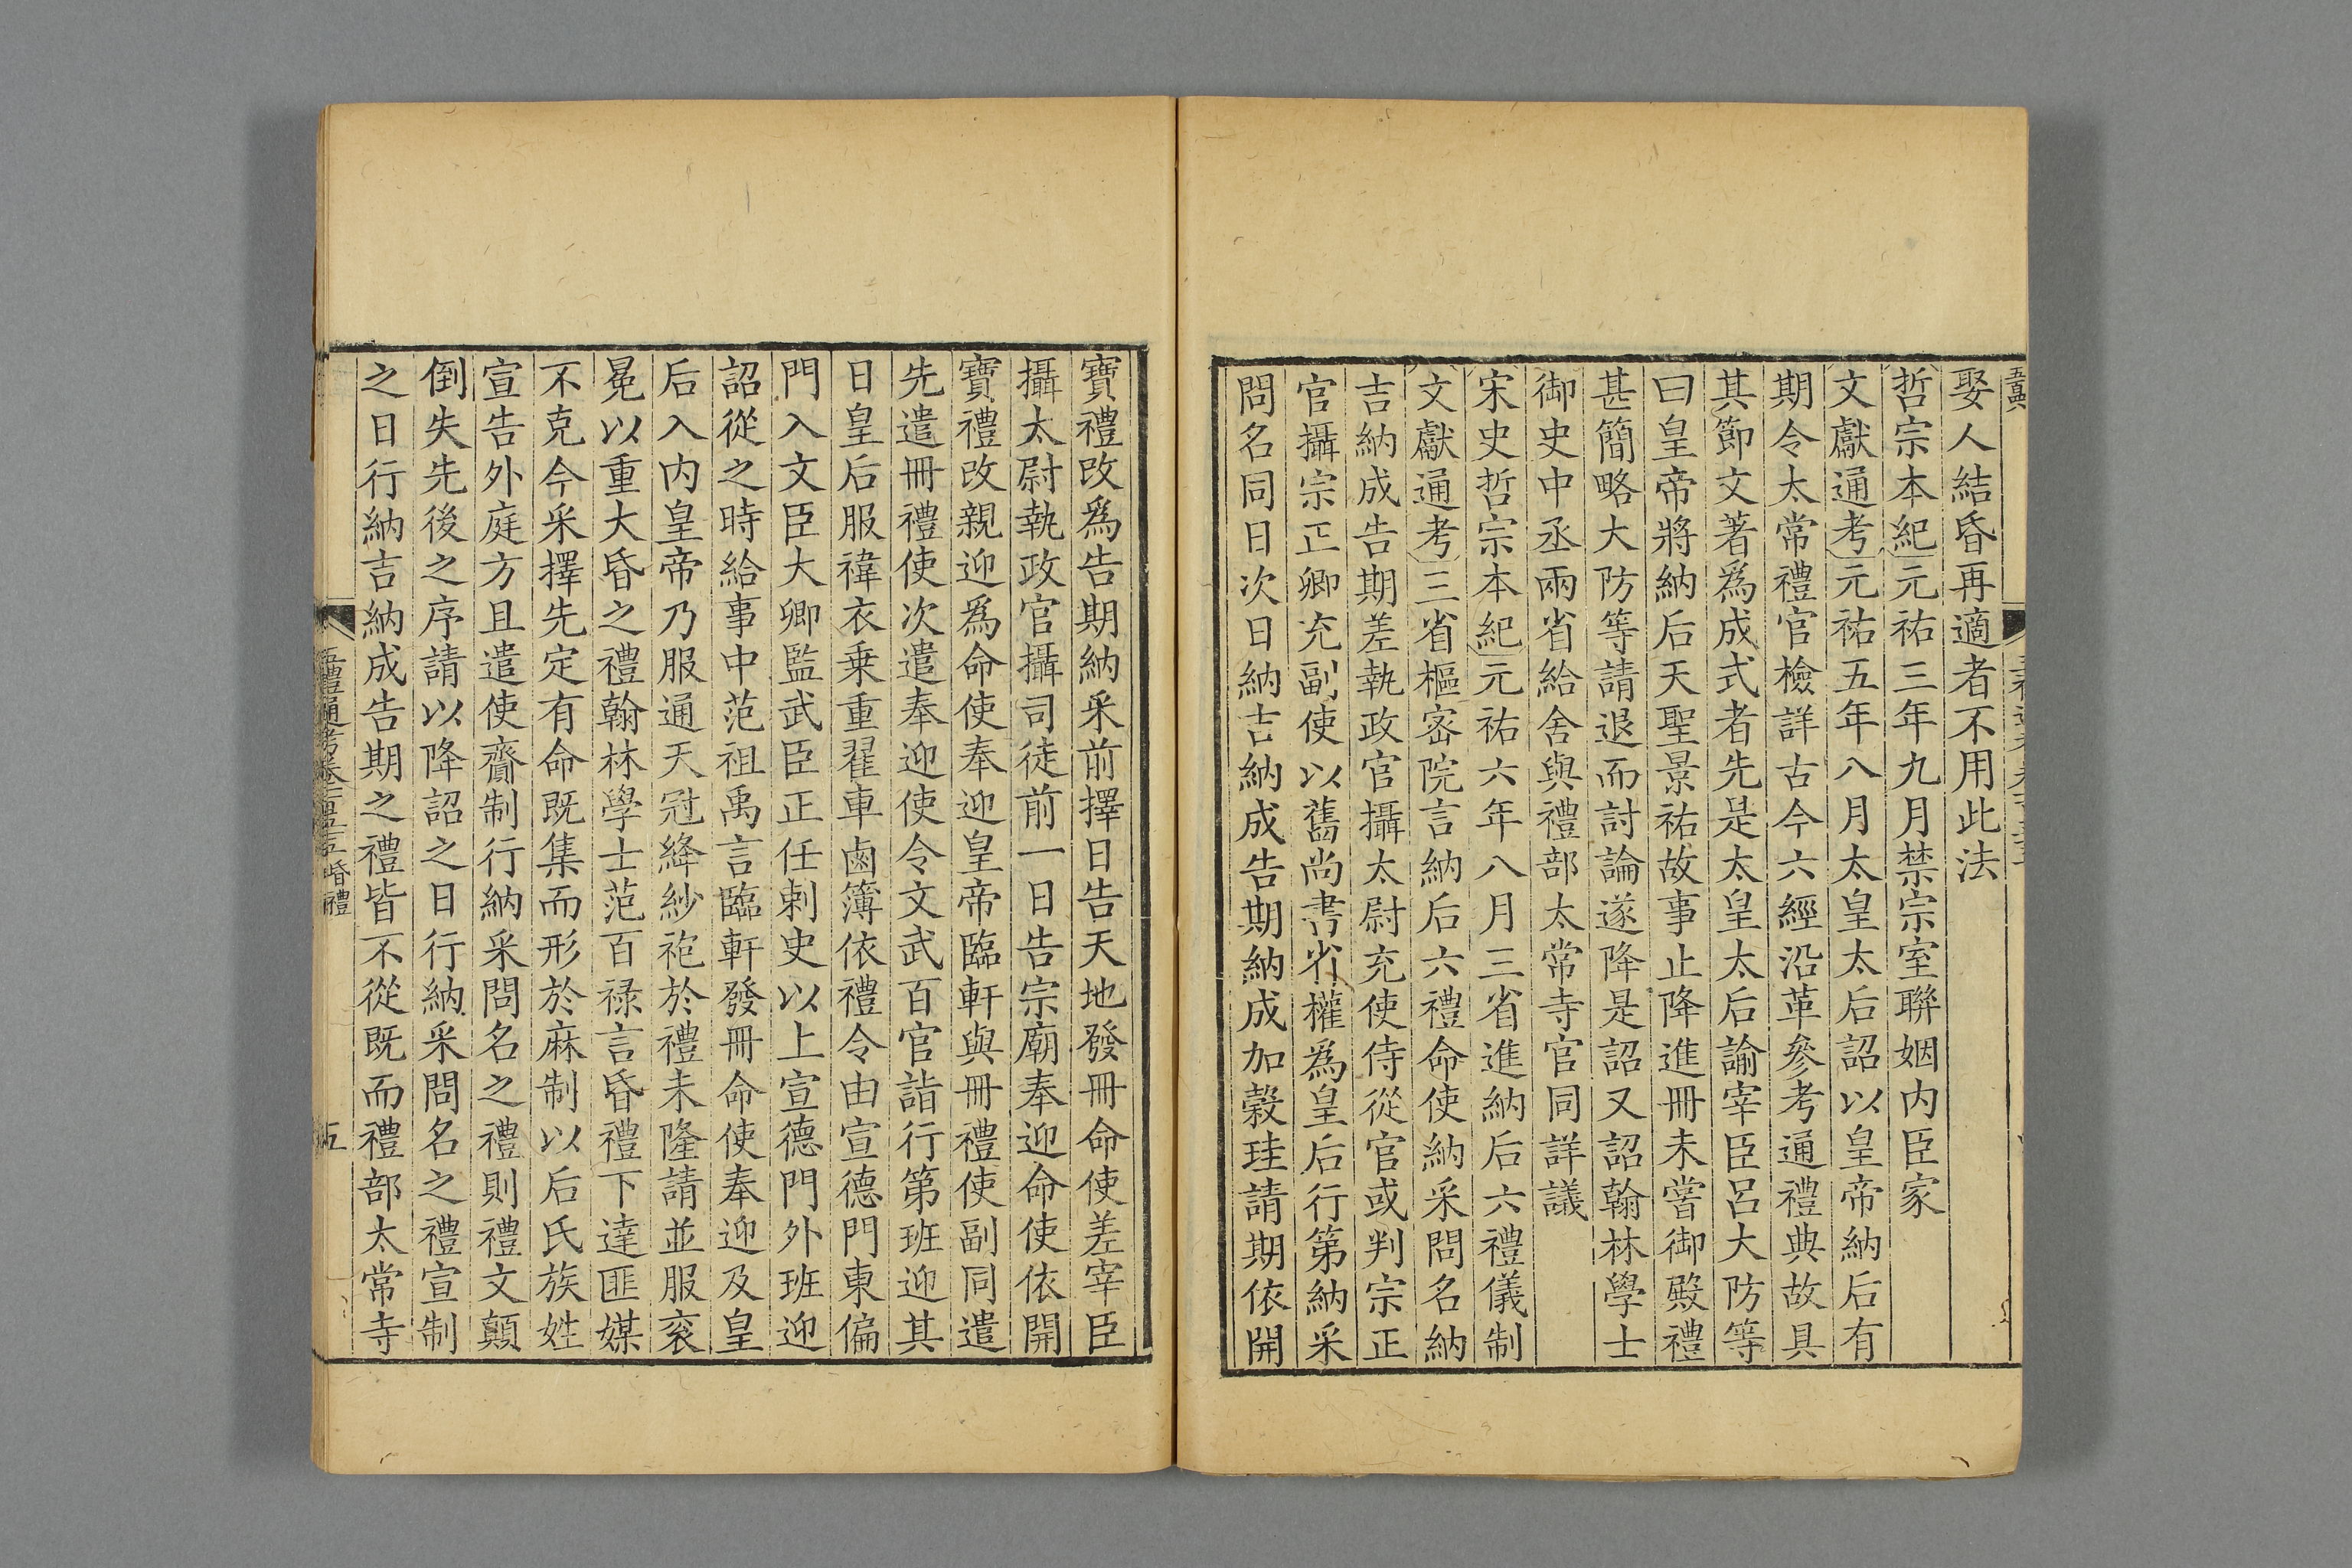 娶人結昏再適者不用此法
哲宗本紀元祐三年九月禁宗室聯姻内臣家
文獻通考元祐五年八月太皇太后詔以皇帝納后有
期令太常禮官檢詳古今六經沿革參考通禮典故具
其節文著爲成式者先是太皇太后諭宰臣呂大防等
曰皇帝將納后天聖景祐故事止降進冊未嘗御殿禮
甚簡略大防等請退而討論遂降是詔又詔翰林學士
御史中丞兩省給舍與禮部太常寺官同詳議
宋史哲宗本紀元祐六年八月三省進納后六禮儀制
文獻通考三省樞宻院言納后六禮命使納采問名納
吉納成告期差執政官攝太尉充使侍從官或判宗正
官攝宗正卿充副使以舊尚書省權爲皇后行第納采
問名同日次日納吉納成告期納成加榖珪請期依開
寶禮改爲告期納采前擇日告天地發冊命使差宰臣
攝太尉執政官攝司徒前一日告宗廟奉迎命使依開
寶禮改親迎爲命使奉迎皇帝臨軒與冊禮使副同遣
先遣冊禮使次遣奉迎使令文武百官詣行第班迎其
日皇后服褘衣乗重翟車鹵簿依禮令由宣德門東偏
門入文臣大卿監武臣正任刺史以上宣德門外班迎
詔從之時給事中范祖禹言臨軒發冊命使奉迎及皇
后入内皇帝乃服通天冠絳紗袍於禮未隆請並服衮
冕以重大昏之禮翰林學士范百禄言昏禮下達匪媒
不克今采擇先定有命既集而形於麻制以后氏族姓
宣告外庭方且遣使齎制行納采問名之禮則禮文顛
倒失先後之序請以降詔之日行納采問名之禮宣制
之日行納吉納成告期之禮皆不從既而禮部太常寺
五禮通考卷 禮 昏禮
五